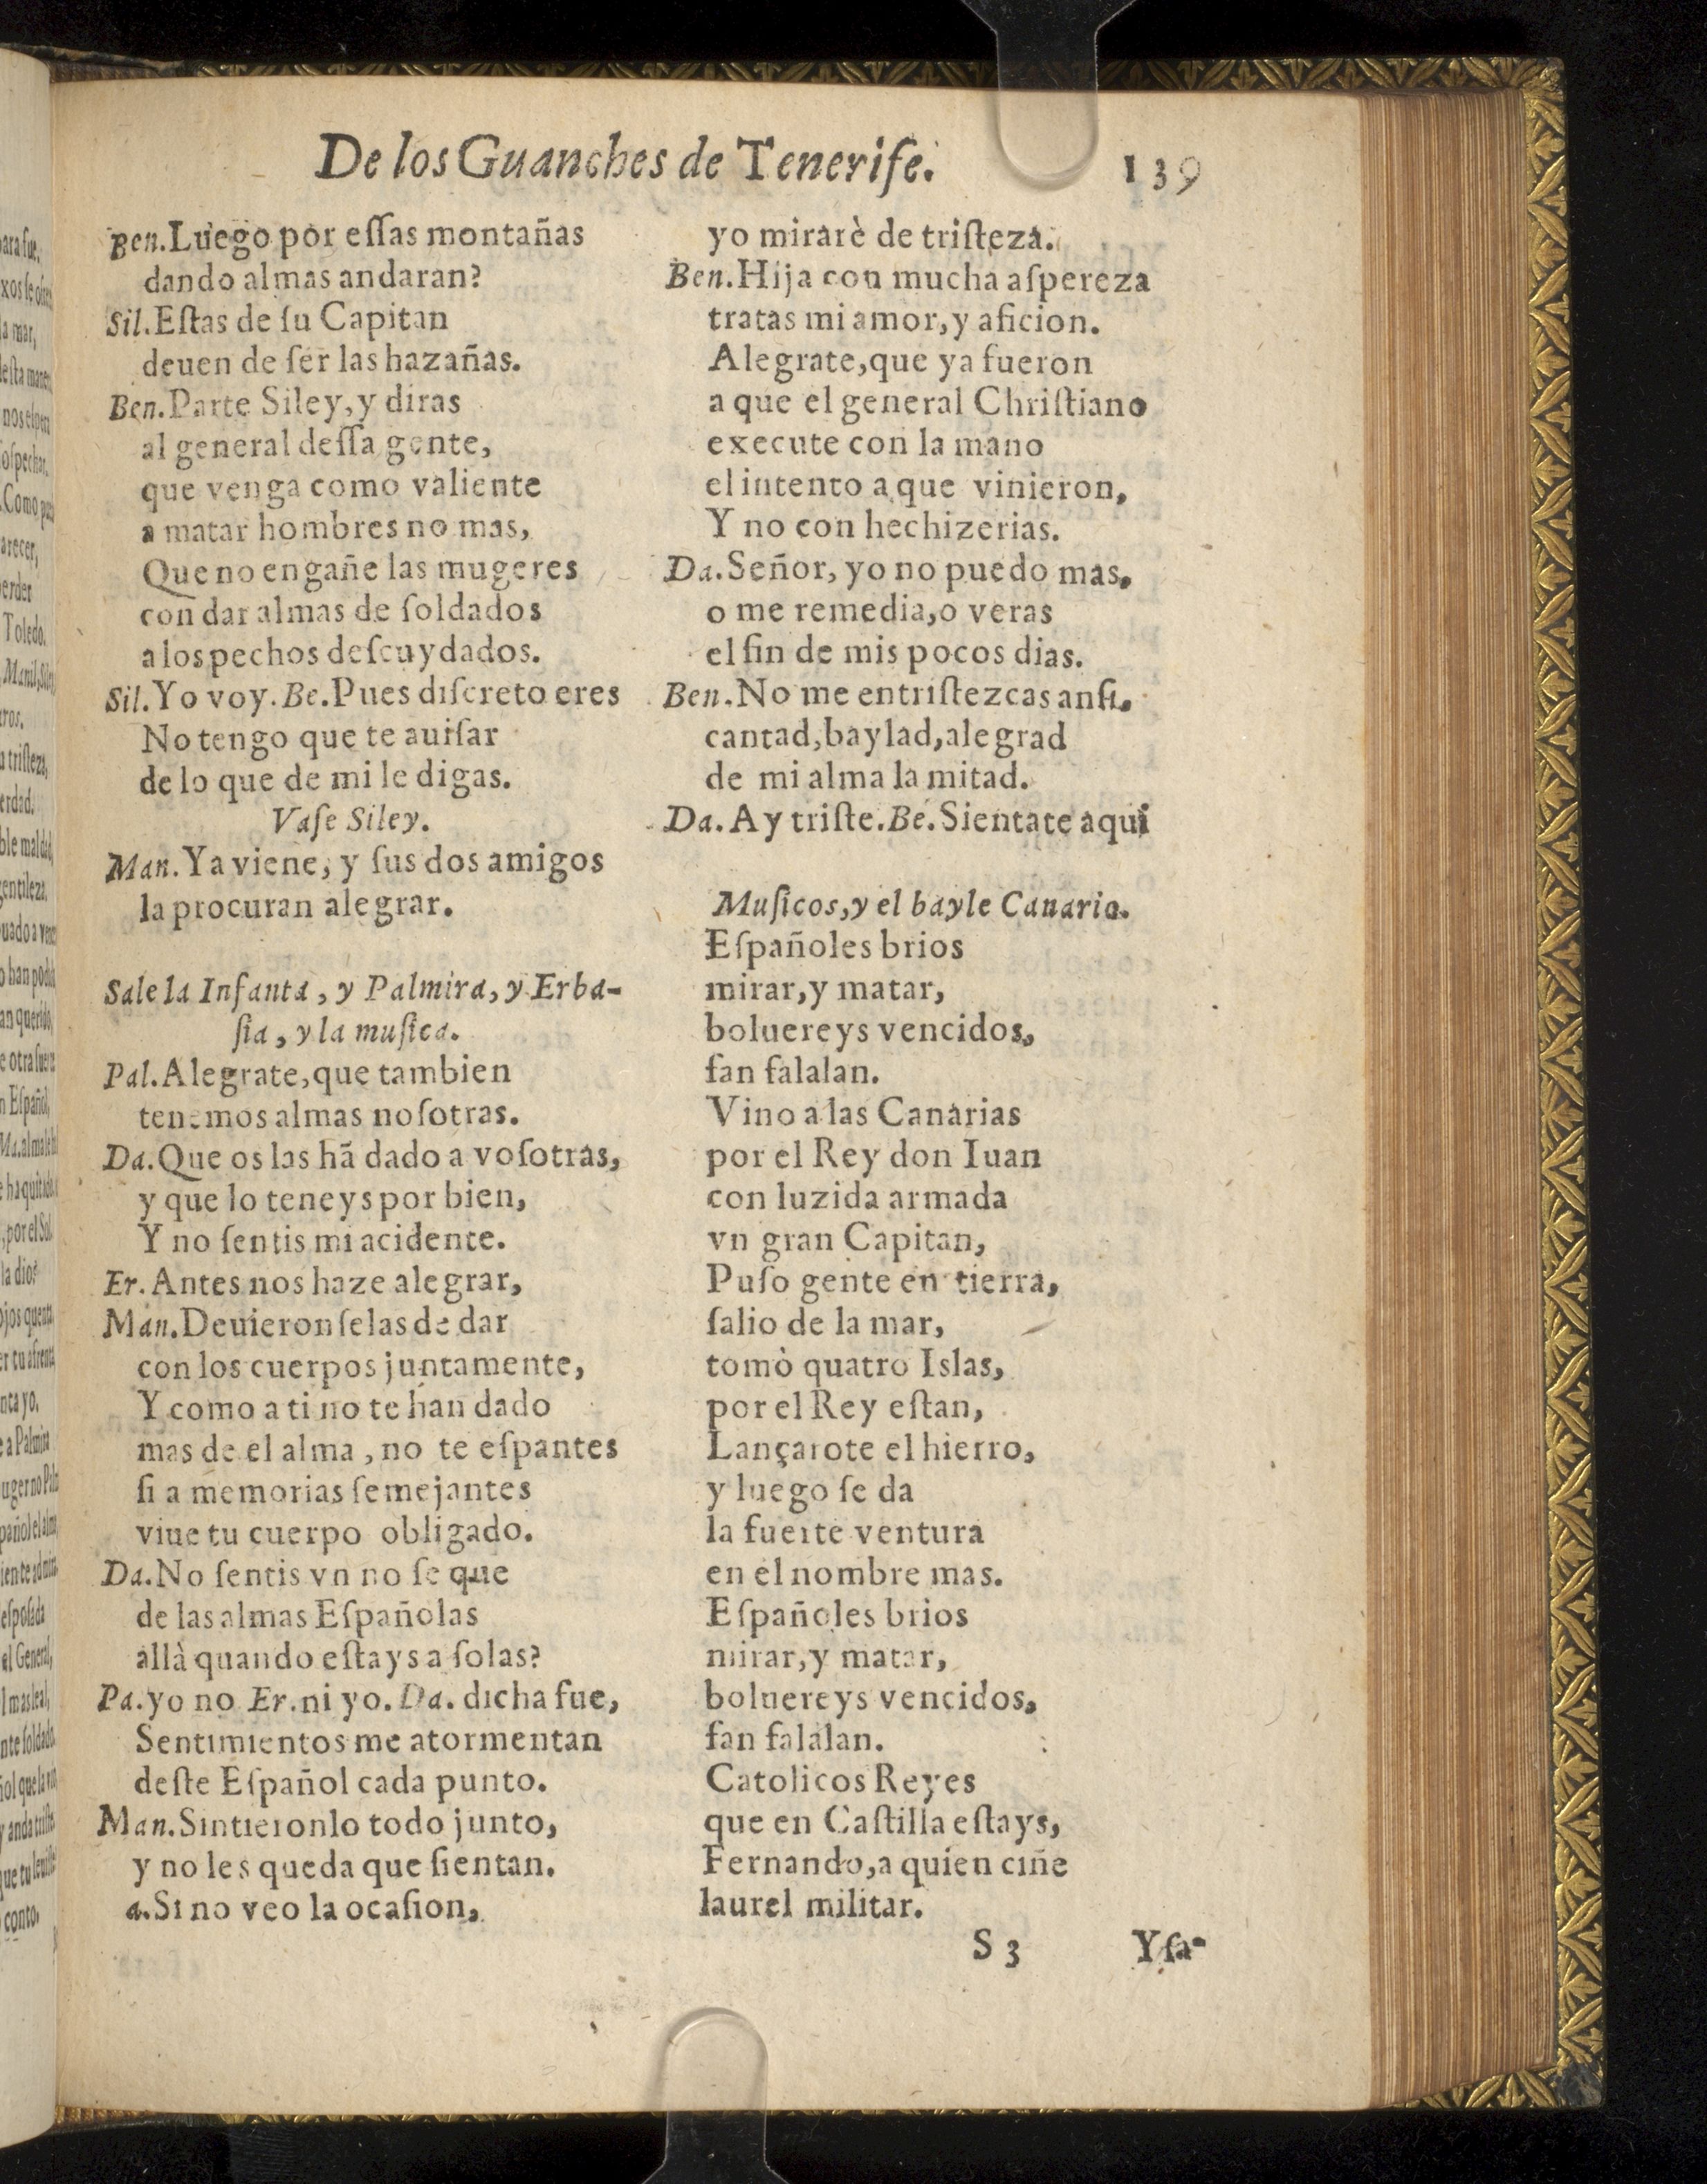 De los Guanches de Tenerife. 139
Ben.Luego por eſſas montañas
dando almas andaran?
Sil.Eſtas de ſu Capitan
deuen de ſer las hazañas.
Ben.Parte Siley, y diras
al general deſſa gente,
que venga como valiente
a matar hombres no mas,
Que no engañe las mugeres
con dar almas de ſoldados
a los pechos deſcuydados.
Sil.Yo voy.Be.Pues diſcreto eres
No tengo que te auiſar
de lo que de mi le digas.
Vaſe Siley.
Man.Ya viene, y ſus dos amigos
la procuran alegrar.
Sale la Infanta, y Palmira, y Erba-
ſia, y la muſica.
Pal.Alegrate,que tambien
tenemos almas noſotras.
Da.Que os las hã dado a voſotras,
y que lo teneys por bien,
Y no ſentis mi acidente.
Er.Antes nos haze alegrar,
Man.Deuieronſelas de dar
con los cuerpos juntamente,
Y como a ti no te han dado
mas de el alma, no te eſpantes
ſi a memorias ſemejantes
viue tu cuerpo obligado.
Da.No ſentis vn no ſe que
de las almas Eſpañolas
allà quando eſtays a ſolas?
Pa.yo no Er.ni yo.Da.dicha fue,
Sentimientos me atormentan
deſte Eſpañol cada punto.
Man.Sintieronlo todo junto,
y no les queda que ſientan.
a.Si no veo la ocaſion,
yo mirarè de triſteza.
Ben.Hija con mucha aſpereza
tratas mi amor,y aficion.
Alegrate,que ya fueron
a que el general Chriſtiano
execute con la mano
el intento a que vinieron,
Y no con hechizerias.
Da.Señor, yo no puedo mas,
o me remedia,o veras
el fin de mis pocos dias.
Ben.No me entriſtezcas anſi,
cantad,baylad,alegrad
de mi alma la mitad.
Da.Ay triſte.Be.Sientate aqui
Muſicos,y el bayle Canario.
Eſpañoles brios
mirar,y matar,
boluereys vencidos,
fan falalan.
Vino a las Canarias
por el Rey don Iuan
con luzida armada
vn gran Capitan,
Puſo gente en tierra,
ſalio de la mar,
tomò quatro Islas,
por el Rey eſtan,
Lançarote el hierro,
y luego ſe da
la fuerte ventura
en el nombre mas.
Eſpañoles brios
mirar,y matar,
boluereys vencidos,
fan falalan.
Catolicos Reyes
que en Caſtilla eſtays,
Fernando,a quien ciñe
laurel militar.
S 3 Yſa-